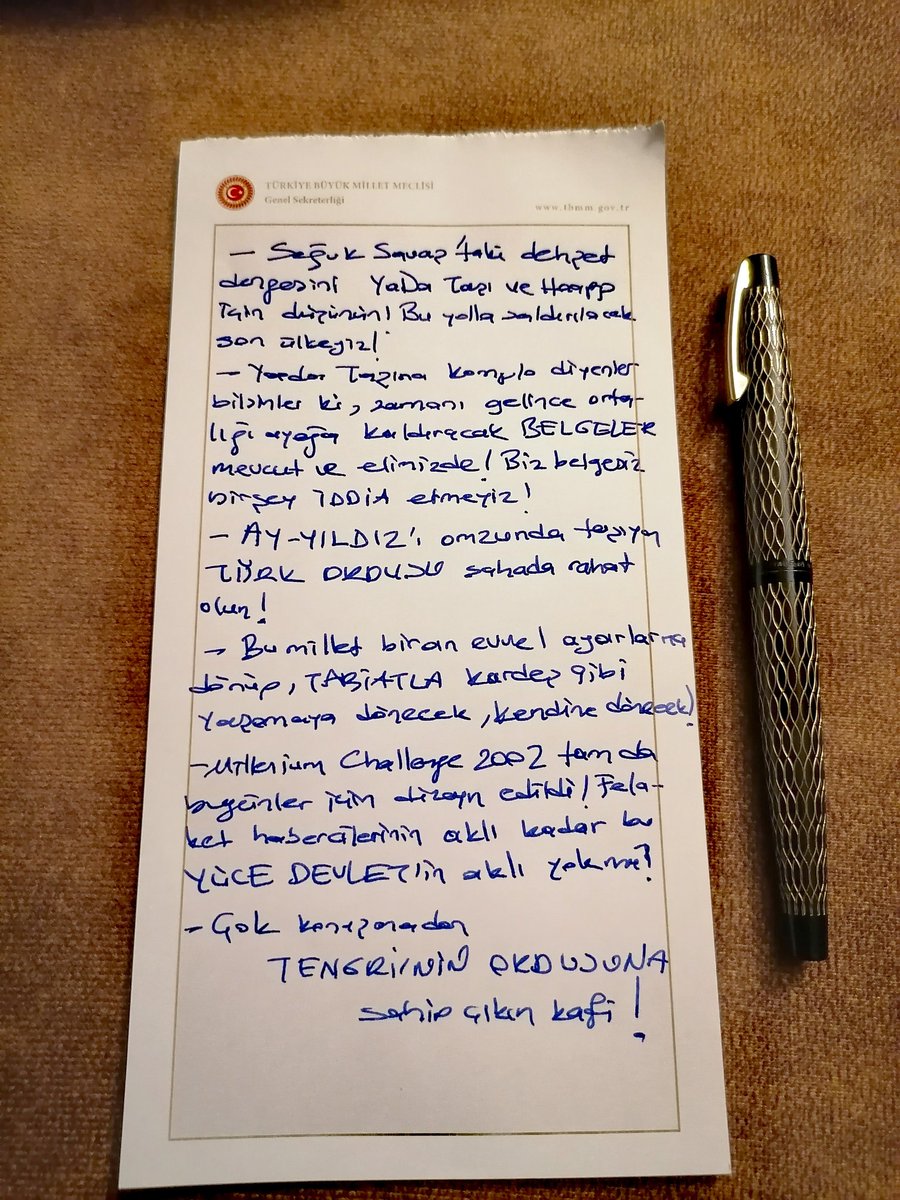 TÜRKİYE BÜYÜK MİLLET MECLİSİ
Genel Sekreterliği
www.tbmm.gov.tr
— Soğuk Savaş'taki dehşet
dengesini YaDa Taşı ve Haarp
için düşünün! Bu yolla saldırılacak
son ülkeyiz!
— Yada Taşına komplo diyenler
bilsinler ki, zamanı gelince orta-
lığı ayağa kaldıracak BELGELER
mevcut ve elimizde! Biz belgesiz
birşey İDDİA etmeyiz!
— AY-YILDIZ'ı omzunda taşıyan
TÜRK ORDUSU sahada rahat
olun!
— Bu millet bir an evvel ayarlarına
dönüp, TABİATLA kardeş gibi
yaşamaya dönecek, kendine dönecek!
— Milenium Challenge 2002 tam da
bugünler için dizayn edildi! Fela-
ket habercilerinin aklı kadar bu
YÜCE DEVLET'in aklı yok mu?
— Çok konuşmadan
TENGRİ'NİN ORDUSUNA
sahip çıkın kafi!